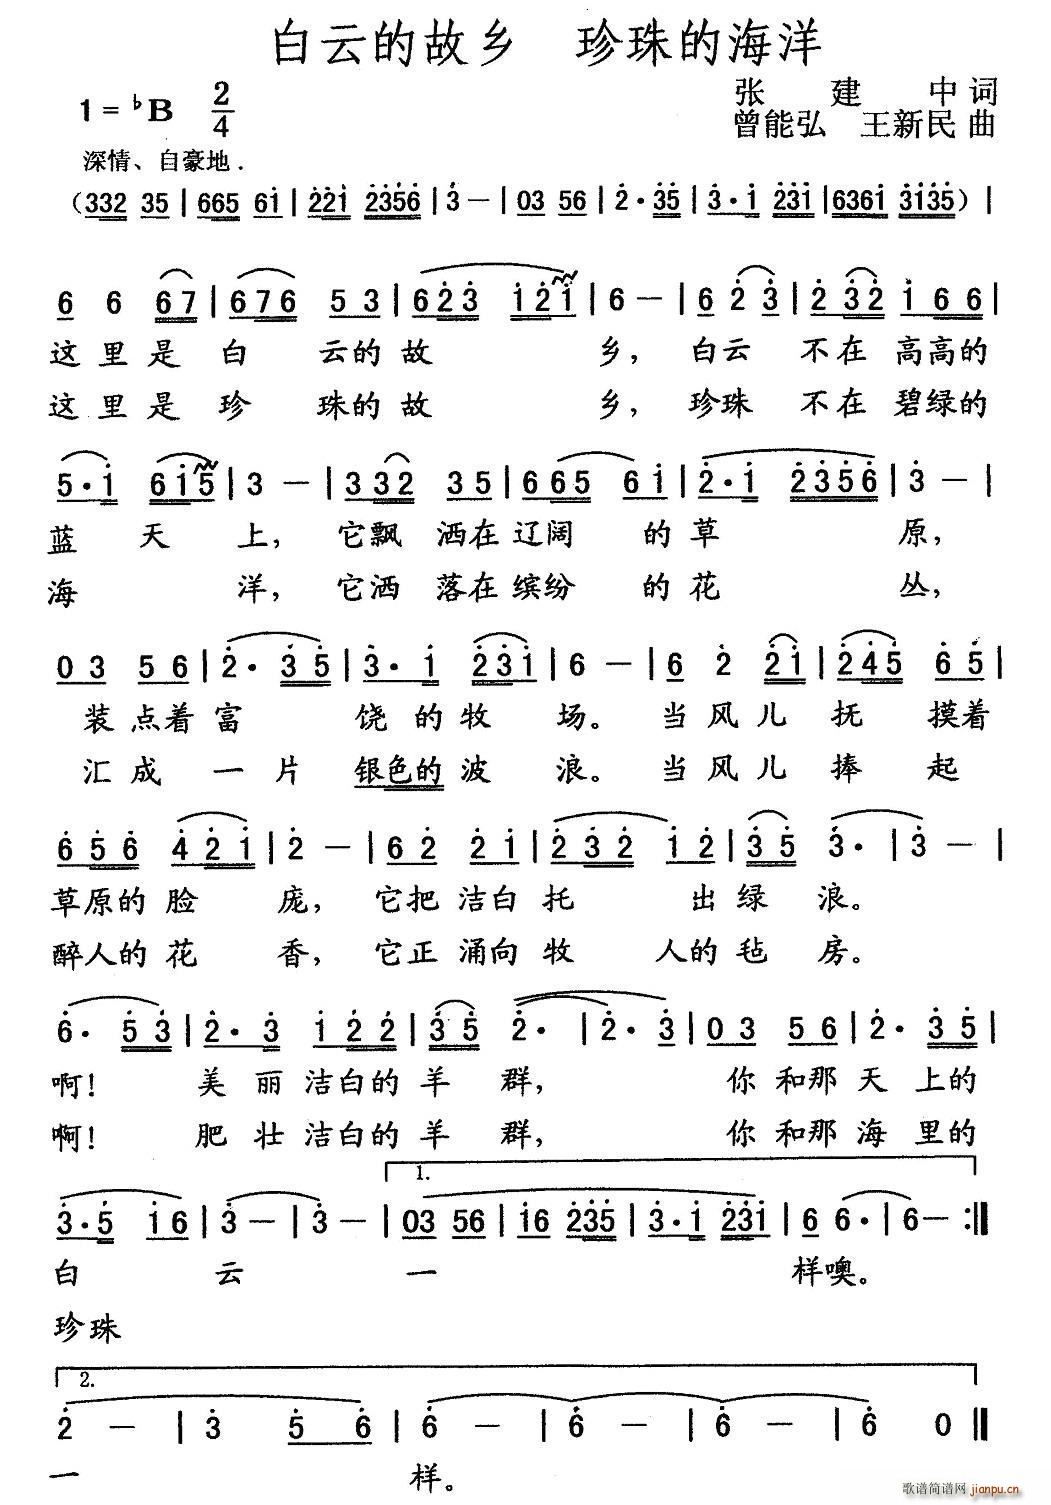 白云的故乡 珍珠的海洋
1 = ♭B 2/4
张建中 词
曾能弘 王新民 曲
深情、自豪地．
（332 35 | 665 61 | 221 2356 | 3 － | 03 56 | 2 · 35 | 3 · 1 231 | 6361 3135）|
6 6 67 | 676 53 | 623 121 | 6 － | 6 2 3 | 2 32 1 66 |
这里是白云的故乡，白云不在高高的
这里是珍珠的故乡，珍珠不在碧绿的
5 · 1 615 | 3 － | 332 35 | 665 61 | 2 · 1 2356 | 3 － |
蓝天上，它飘洒在辽阔的草原，
海洋，它洒落在缤纷的花丛，
03 56 | 2 · 35 | 3 · 1 231 | 6 － | 6 2 21 | 245 65 |
装点着富饶的牧场。当风儿抚摸着
汇成一片银色的波浪。当风儿捧起
656 421 | 2 － | 62 21 | 232 12 | 35 3 · | 3 － |
草原的脸庞，它把洁白托出绿浪。
醉人的花香，它正涌向牧人的毡房。
6 · 53 | 2 · 3 122 | 35 2 · | 2 · 3 | 03 56 | 2 · 35 |
啊！美丽洁白的羊群，你和那天上的
啊！肥壮洁白的羊群，你和那海里的
1.
3 · 5 16 | 3 － | 3 － | 03 56 | 16 235 | 3 · 1 231 | 6 6 · | 6 － :‖
白云一样噢。
珍珠
2.
2 － | 3 5 6 | 6 － | 6 － | 6 － | 6 0 ‖
一样。
歌谱简谱网
jianpu.cn